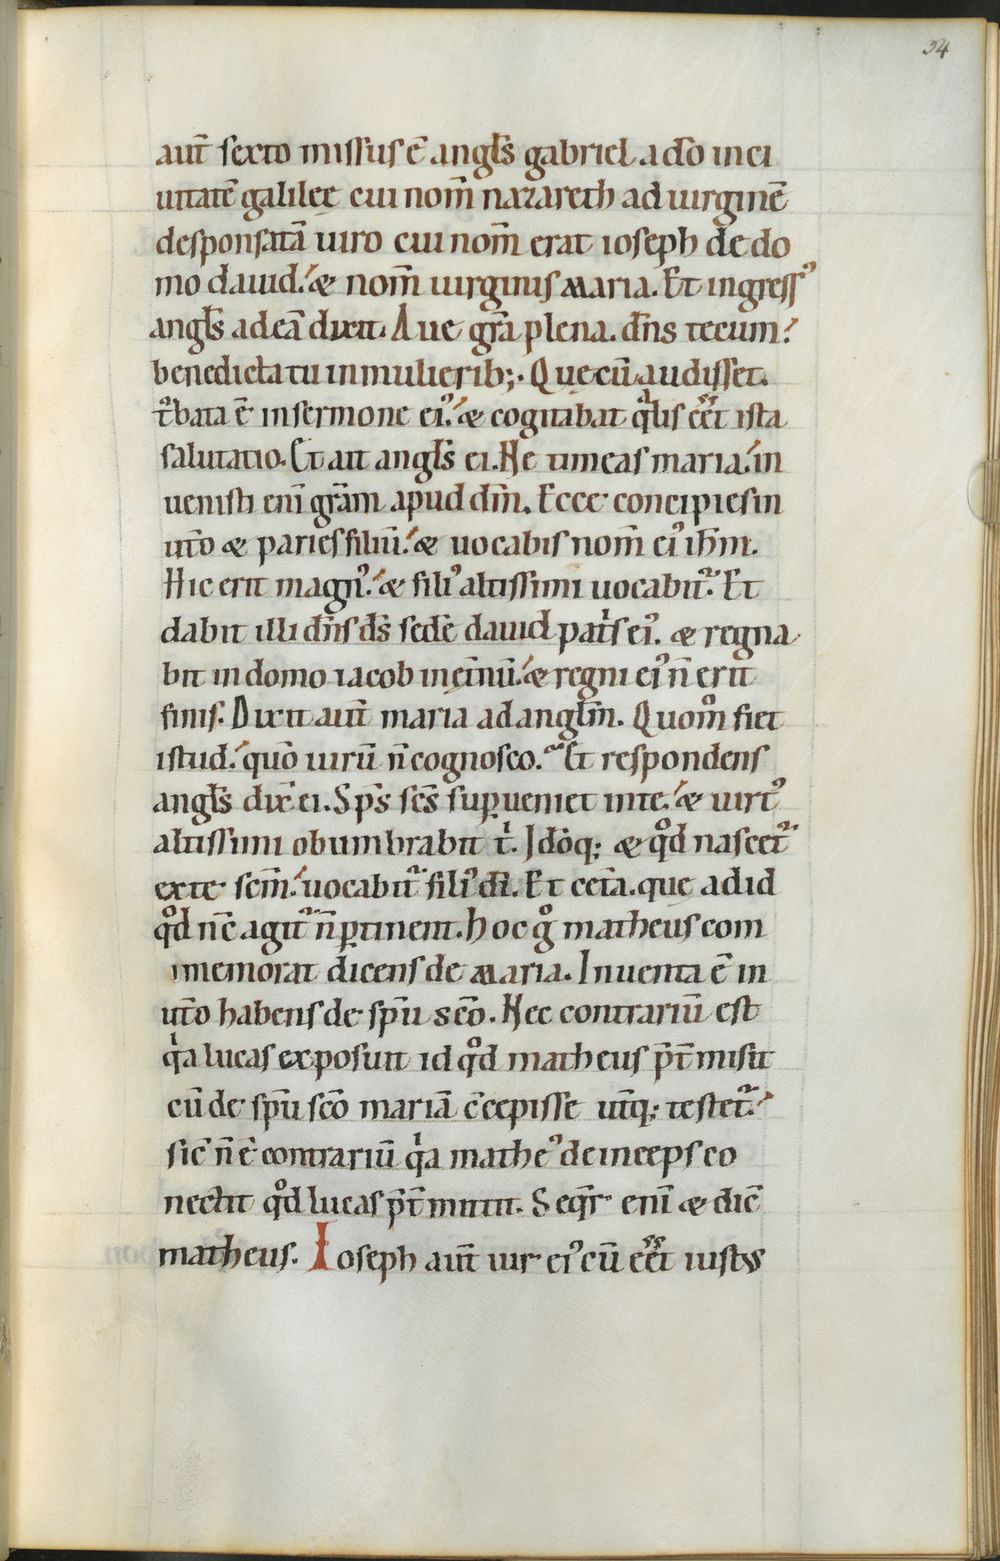 34
aut̄ sexto missus ē angl̄s gabriel a do̅ in ci
uitatē galileę cui nom̄ nazareth ad uirginē
desponsatā uiro cui nom̄ erat ioseph de do
mo dauid. & nom̄ uirginis maria. Et ingressꝰ
angl̄s ad eā dixit. Aue gr̄a plena. dn̄s tecum.
benedicta tu in mulierib;. Que cū audisset.
tͬbata ē in sermone eiꝰ. & cogitabat qͥlis eēt ista
salutatio. Et ait angl̄s ei. Ne timeas maria. in
uenisti enī gr̄am apud dm̄. Ecce concipies in
ut̄o & paries filiū. & uocabis nom̄ eiꝰ ihm̄.
Hic erit magnꝰ. & filiꝰ altissimi uocabit᷑. Et
dabit illi dn̄s ds̄ sedē dauid patͥs eiꝰ. & regna
bit in domo iacob in et̄nū. & regni eiꝰ n̄ erit
finis. Dixit aut̄ maria ad anglm̄. Quom̊ fiet
istud. quō uirū n̄ cognosco. Et respondens
angl̄s dix̄ ei. Sp̄s sc̄s suꝑueniet in te. & uirtꝰ
altissimi obumbrabit tͥ. Idōq; & qd̊ nascet᷑
ex te sc̄m. uocabit᷑ filiꝰ dī. Et cet̄a. que ad id
qd̊ nc̄ agit᷑ n̄ ꝑtinent. Hoc g̊ matheus com
memorat dicens de maria. Inuenta ē in
ut̄o habens de sp̄u sc̄o. Nec contrariū est
qͥa lucas exposuit id qd̊ matheus p̄t̄misit
cū de sp̄u sc̄o mariā c̄cepisse ut̄q; testet᷑.
sic̄ n̄ ē contrariū qͥa matheꝰ deinceps co
nectit qd̊ lucas p̄t̄mittit. Seqr̄ enī & dic̄
matheus. Ioseph aut̄ uir eiꝰ cū eēt iustus